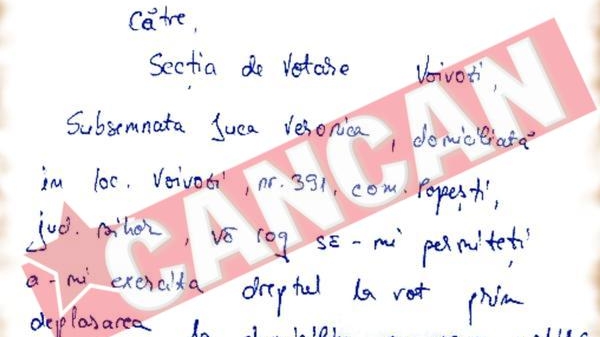 Către,
Secția de Votare Voivozi,
Subsemnata Juca Veronica, domiciliată
în loc. Voivozi, nr. 391, com. Popești,
jud. Bihor, vă rog se-mi permiteți
a-mi exercita dreptul la vot prin
deplasarea la
CANCAN